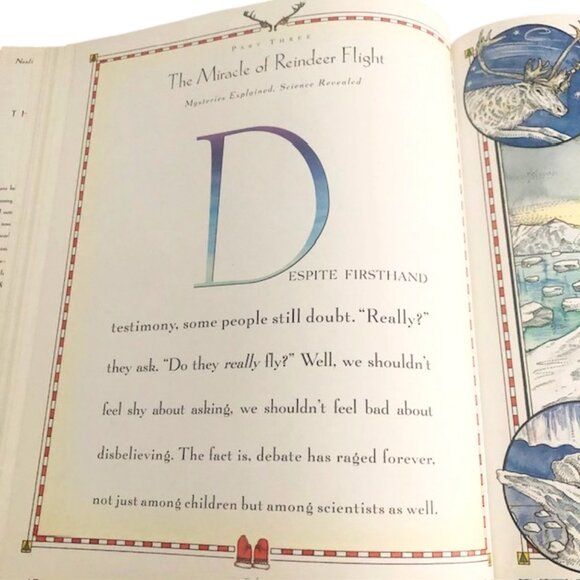 PART THREE
The Miracle of Reindeer Flight
Mysteries Explained, Science Revealed
DESPITE FIRSTHAND
testimony, some people still doubt. “Really?”
they ask. “Do they really fly?” Well, we shouldn’t
feel shy about asking, we shouldn’t feel bad about
disbelieving. The fact is, debate has raged forever,
not just among children but among scientists as well.